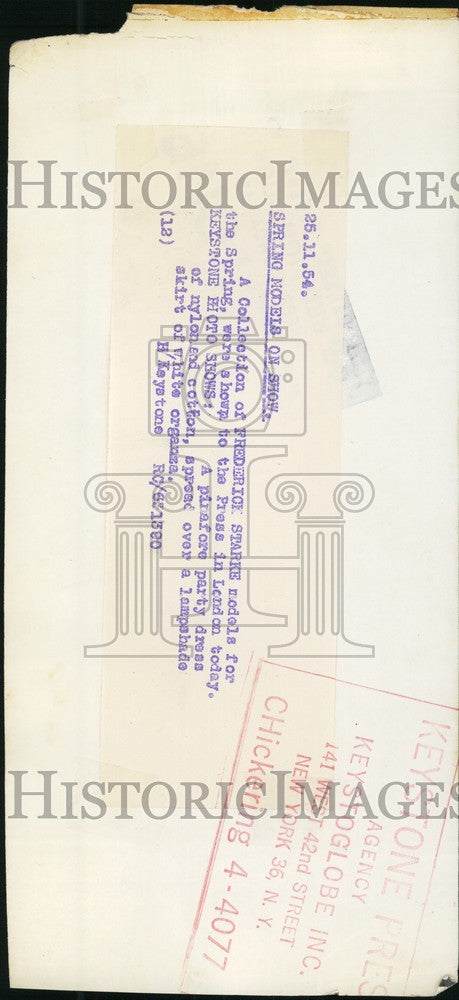 25.11.54.
SPRING MODELS ON SHOW.
A Collection of FREDERICK STARKE models for
the Spring, were shown to the Press in London today.
KEYSTONE PHOTO SHOWS: A pinafore party dress
of nylon and cotton, spread over a lampshade
skirt of white organza.
H/Keystone
(12)
KEYSTONE PRES
AGENCY
KEYSTOGLOBE INC.
141 WEST 42nd STREET
NEW YORK 36, N. Y.
CHickering 4-4077
HISTORICIMAGES
HISTORICIMAGES